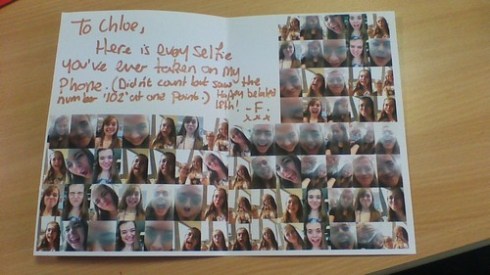 To Chloe,
Here is every selfie
you've ever taken on my
Phone. (Didn't count but saw the
number '102' at one point.) Happy belated
18th! - F.
xxx